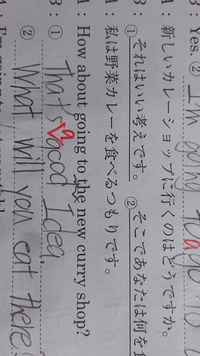 : Yes. ② I'm going to a
: 新しいカレーショップに行くのはどうですか。
: ①それはいい考えです。 ②そこであなたは何を
: 私は野菜カレーを食べるつもりです。
: How about going to the new curry shop?
: ① That's a good Idea.
② What will you eat there?